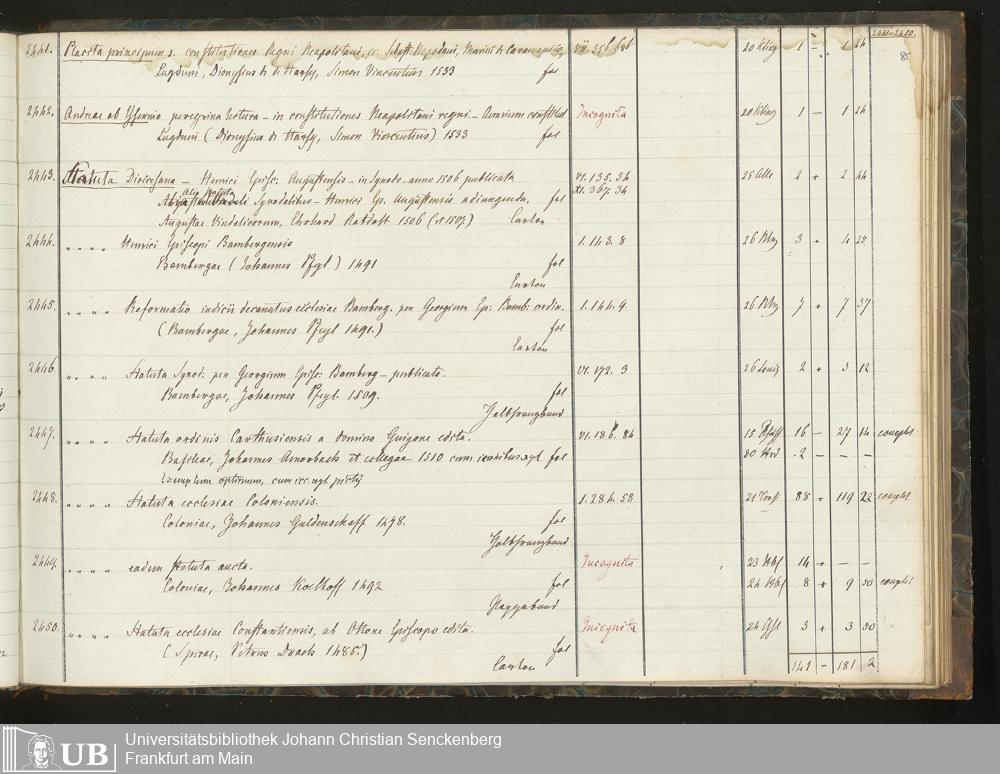 2441-2450.
85
2441. Placita principum s. constitutiones Regni Neapolitani, 20 1 - 1 24
Lugduni, Dionysius de Harsy, Simon Vincentius 1533 fol
2442. Andreae ab Ysernio peregrina lectura - in constitutiones Neapolitani regni - Incognita 20 1 - 1 24
Lugduni (Dionysius de Harsy, Simon Vincentius) 1533 fol
2443. Statuta Dioecesana - Henrici Episc. Augustensis - in Synodo - anno 1506 publicata VI. 135. 34 25 2 + 2 44
Alia statuta Synodalibus - Henrici Ep. Augustensis adiungenda. fol XI. 367. 34
Augustae Vindelicorum, Erhard Ratdolt 1506 (et 1507.) Carton
2444. " " " " Henrici Episcopi Bambergensis 1. 143. 8 26 3 + 4 25
Bambergae (Johannes Pfeyl) 1491 fol
Carton
2445. " " " " Reformatio iudicii decanatus ecclesiae Bamberg. per Georgium Ep: Bamb: ordin. 1. 144. 9. 26 7 + 7 37
(Bambergae, Johannes Pfeyl 1491.) fol
Carton
2446 " " " " Statuta Synod. per Georgium Episc. Bamberg - publicata. VI. 172. 3 26 2 + 3 12
Bambergae, Johannes Pfeyl. 1509. fol
Halbfranzband
2447. " " " " Statuta ordinis Carthusiensis a domino Guigone edita. VI. 186. 84 15 16 - 27 14 complet
Basileae, Johannes Amorbach et collegae 1510 cum fol 30 2 - - -
Exemplum optimum, cum
2448. " " " " Statuta ecclesiae Coloniensis. 1. 284. 58 21 88 + 119 22 complet
Coloniae, Johannes Guldenschaff 1478. fol
Halbfranzband
2449. " " " " eadem statuta aucta. Incognita 23 14 + - -
Coloniae, Johannes Koelhoff 1492 fol 24 8 + 9 50 complet
Pappband
2450. " " " " Statuta ecclesiae Constantiensis, ab Ottone Episcopo edita. Incognita 24 3 + 3 30
(Spirae, Petrus Drach 1485.) fol
Carton 141 - 181 2
UB
Universitätsbibliothek Johann Christian Senckenberg
Frankfurt am Main